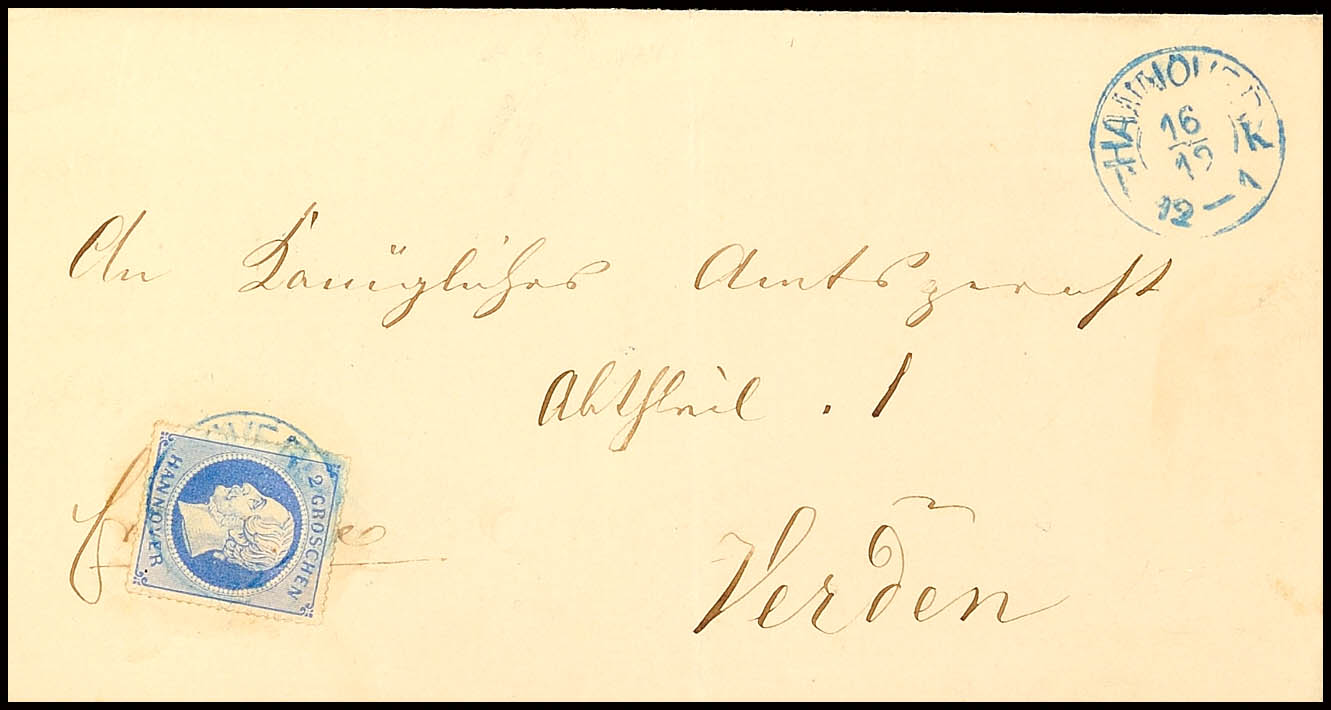 HANNOVER
16
12
12-1
An Königliches Amtsgericht
Abtheil. 1
Verden
2 GROSCHEN
HANNOVER